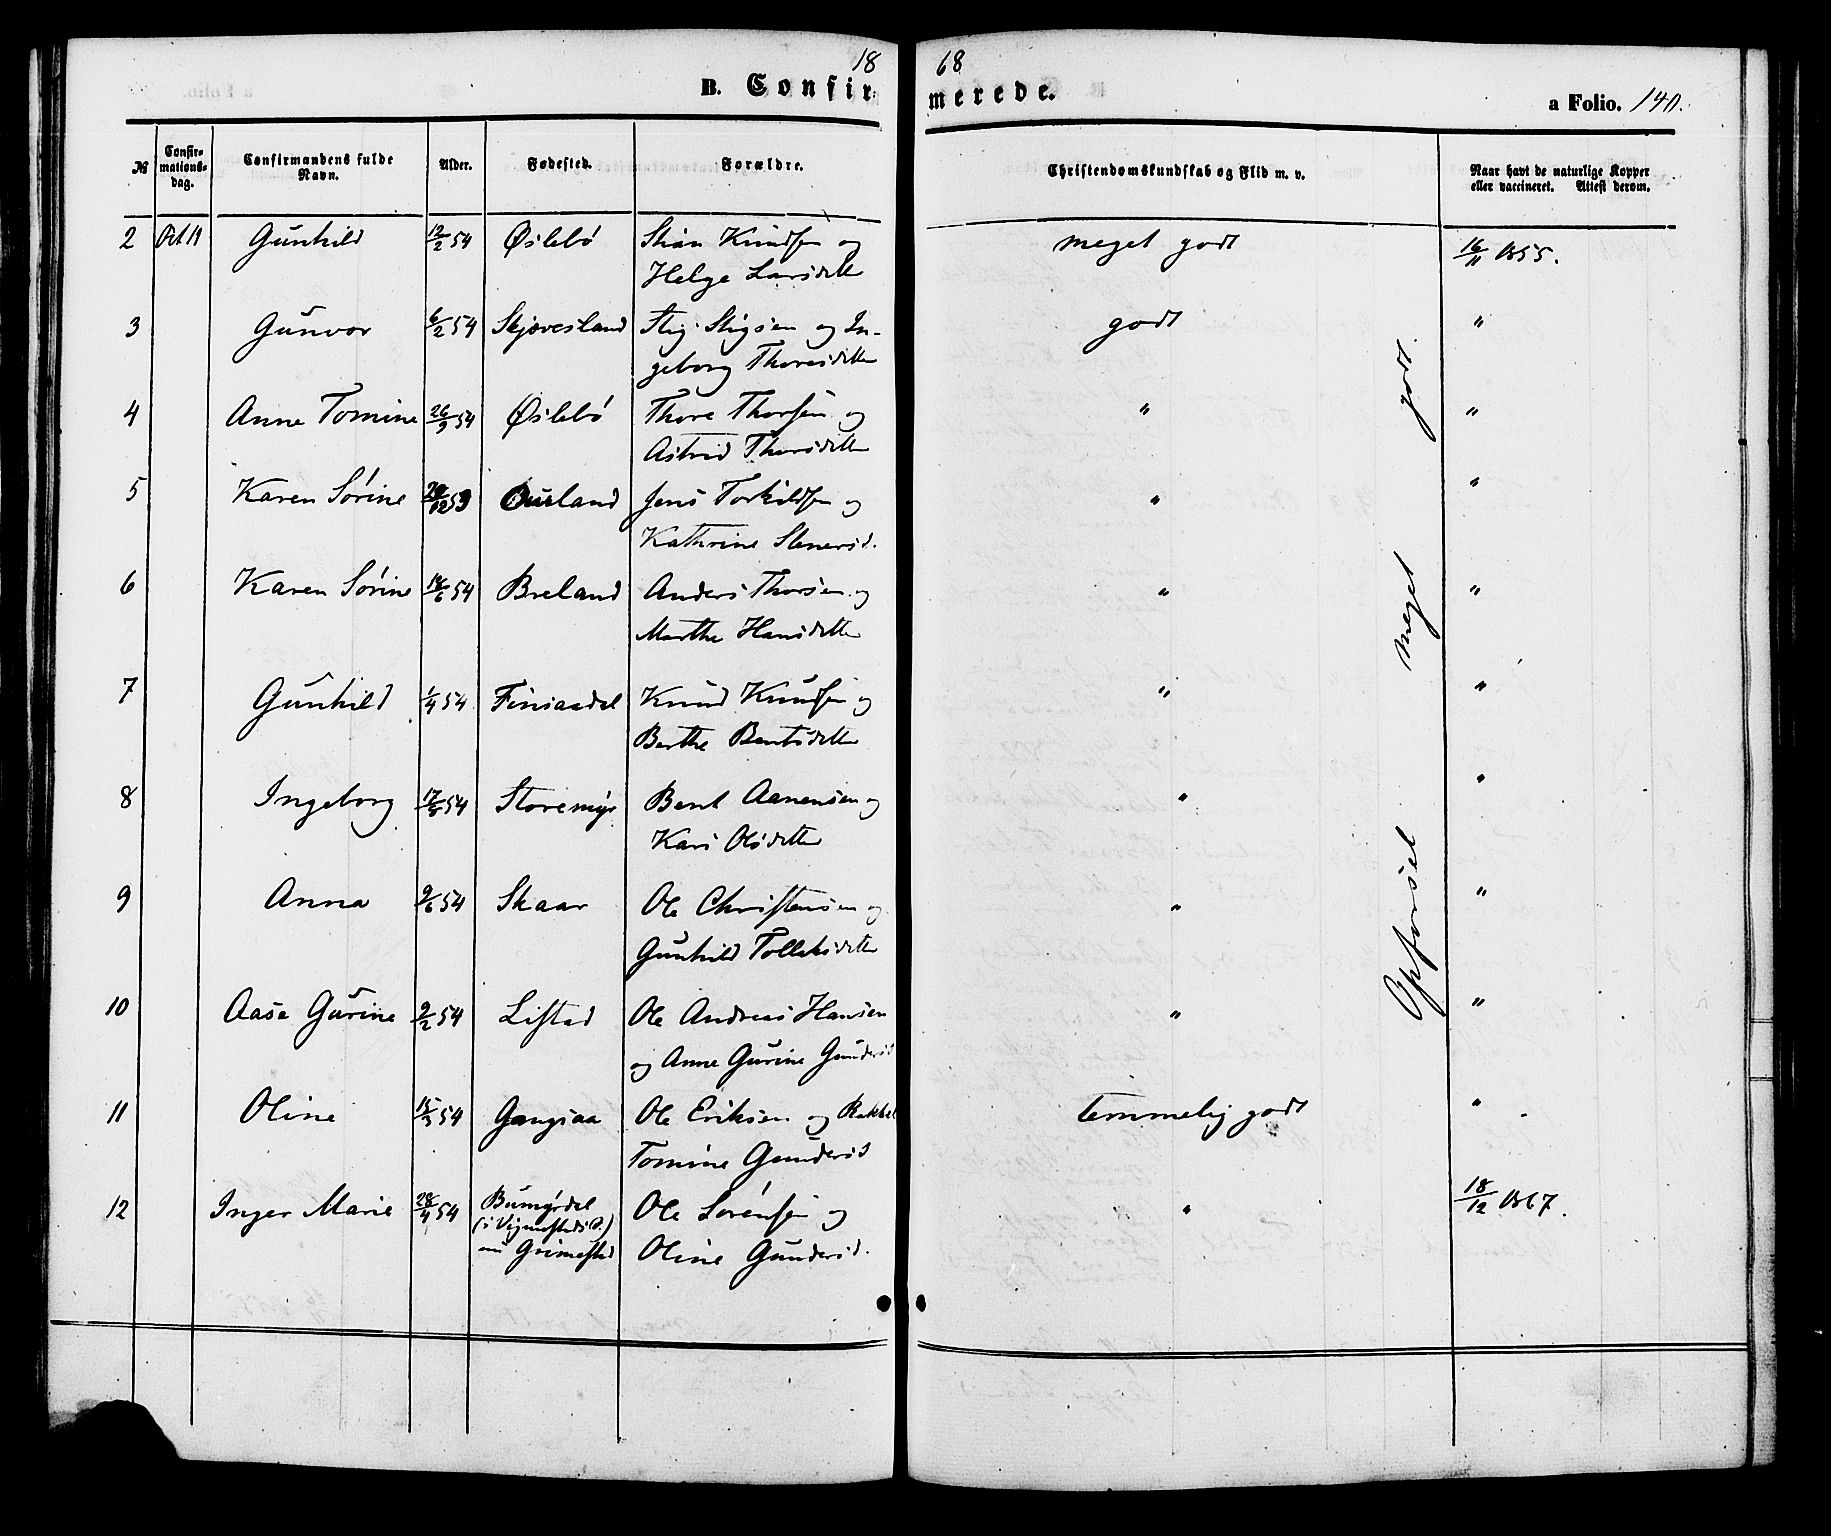 18 68
B. Confir- merede.
a Folio. 140.
№ Confir-mations-dag. Confirmandens fulde Navn. Alder. Fødested. Forældre. Christendomskundskab og Flid m. v. Naar havt de naturlige Kopper eller vaccineret. Attest derom.
2 Oct 11 Gunhild 12/2 54 Øslebø Stian Knudsen og meget godt 16/11 1855.
Helge Larsdatter
3 Gunvor 6/2 54 Skjævesland Stig Stigsen og In- godt "
geborg Thoresdatter
4 Anne Tomine 26/9 54 Øslebø Thore Thorsen og " "
Astrid Thorsdatter
5 Karen Sørine 53 Ouland Jens Torkildsen og " "
Kathrine Stenersd.
6 Karen Sørine 18/6 54 Breland Anders Thorsen og " "
Marthe Hansdatter
7 Gunhild 1/4 54 Finsaadal Knud Knudsen og " "
Berthe Bentsdatter
8 Ingeborg 54 Storemyr Bent Aanensen og " "
Kari Olsdatter
9 Anna 9/6 54 Skaar Ole Christensen og " "
Gunhild Tollaksdatter
10 Aase Gurine 9/2 54 Liftad Ole Andreas Hansen " "
og Anne Gurine Gundersd
11 Oline 15/3 54 Gangsaa Ole Eriksen og Rakkel temmelig godt "
Tomine Gundersd
12 Inger Marie 28/4 54 Ole Sørensen og " 18/12 1867.
nu Grimestad Oline Gundersd.
Opførsel meget godt.